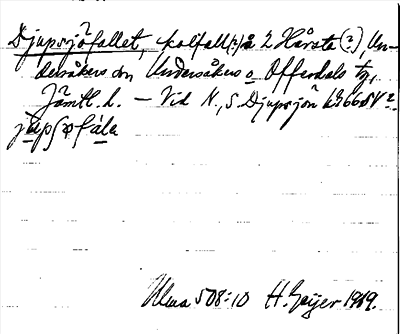 Djupsjöfallet, kolfall (?) å 2 Hårsta (?), Un-
dersåkers sn Undersåkers o Offerdals tg,
Jämtl. l. – Vid N., S. Djupsjön
júpʃøfála
Ulma 508:10 H. Geijer 1919.